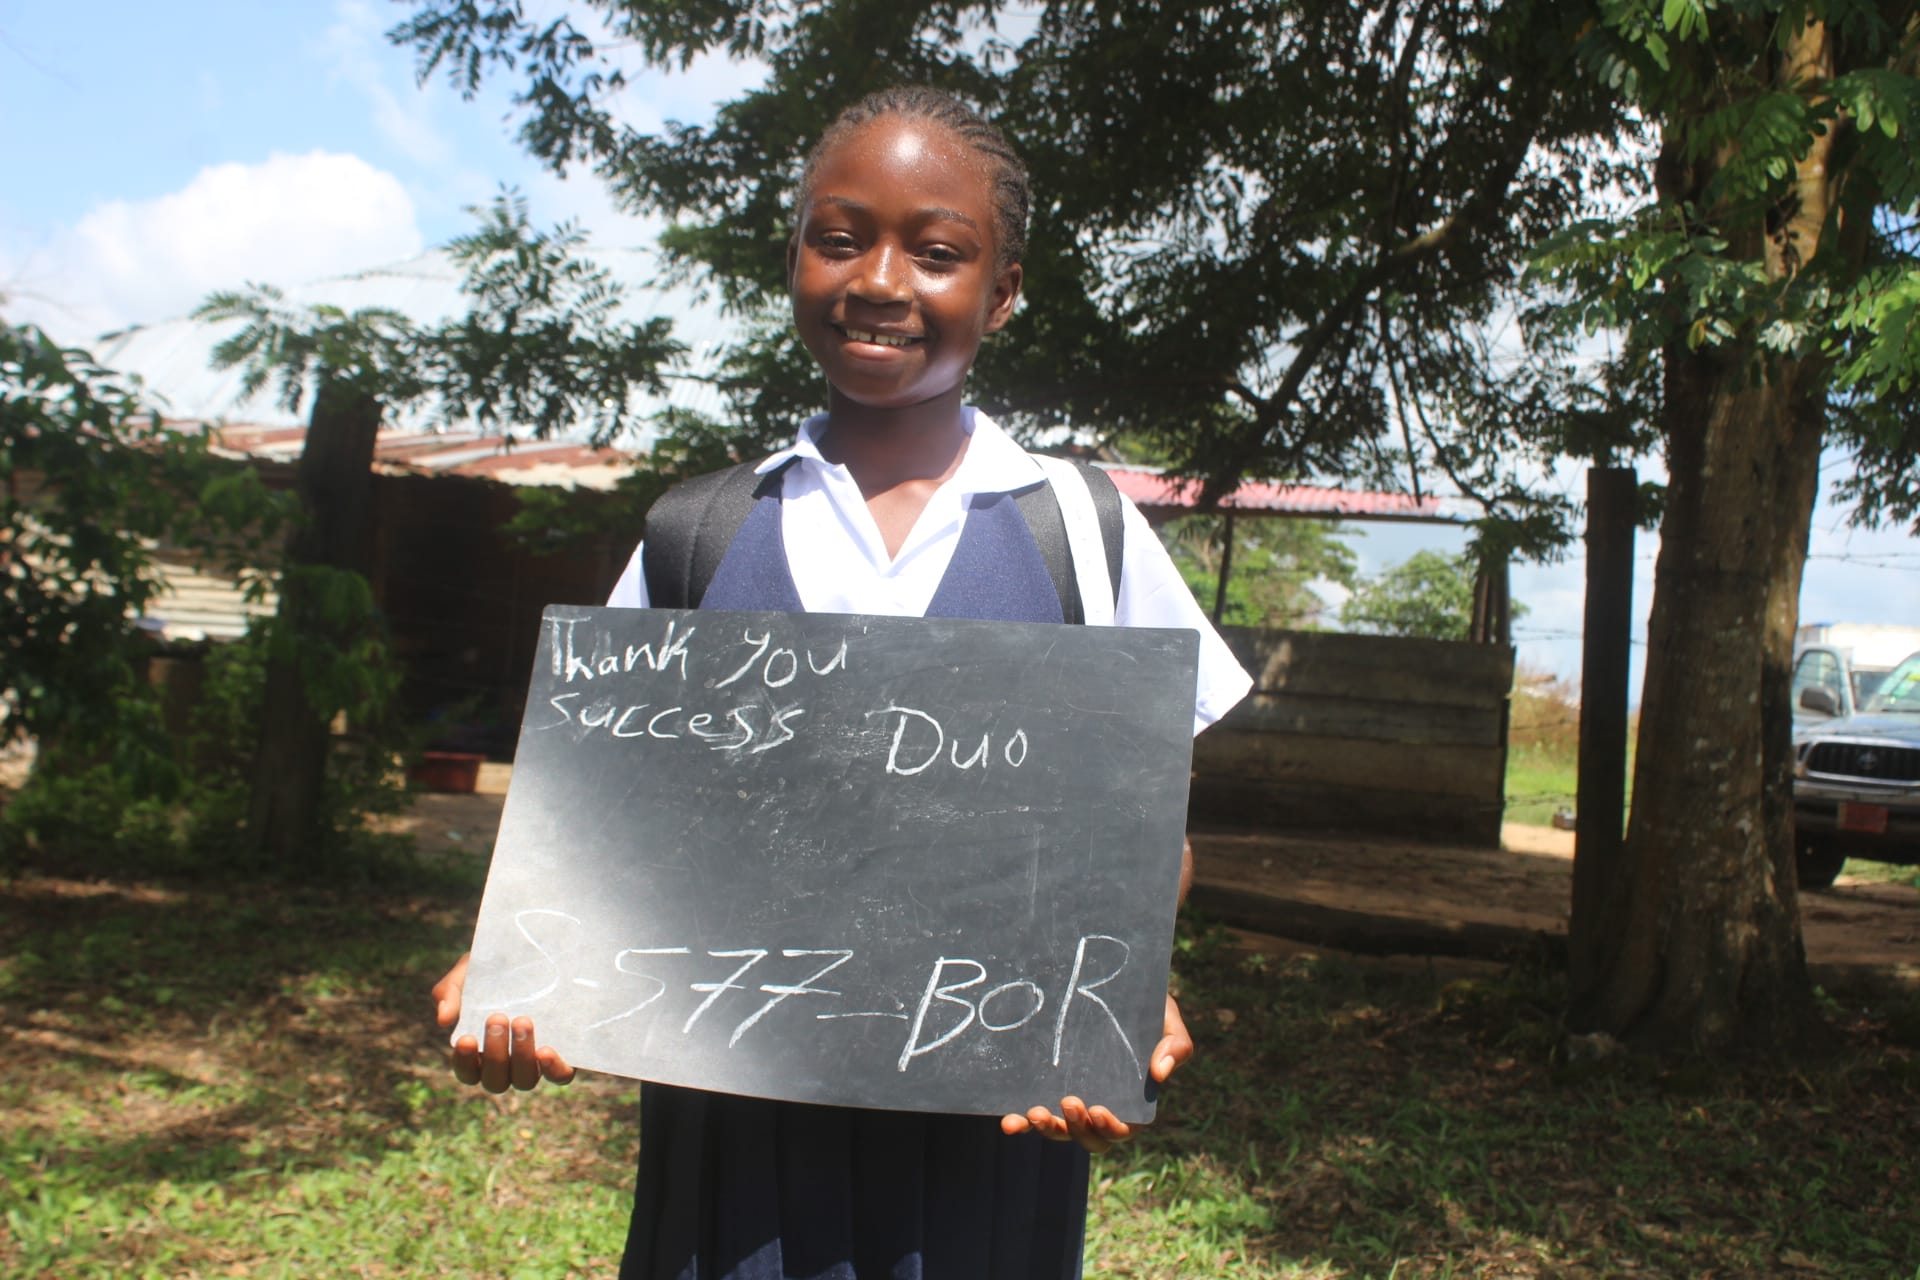 Thank you
success Duo
S-577-BOR